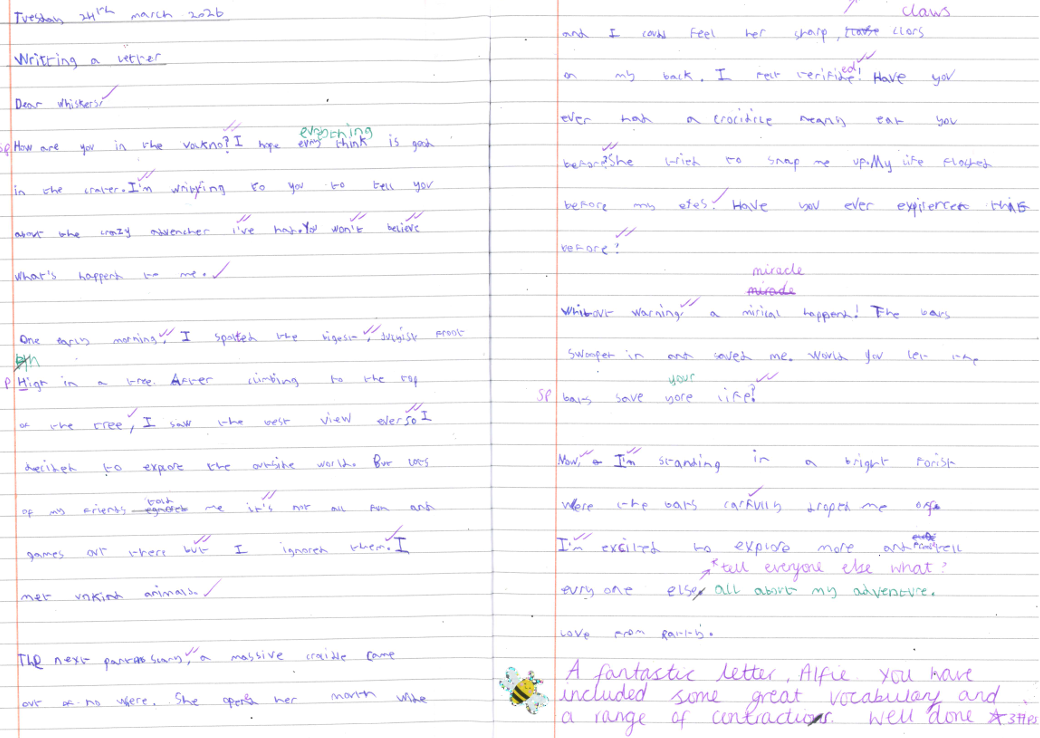 Tuesday 24th march 2026
Writting a letter
Dear whiskers,
sp How are you in the volkno? I hope every think everything is good
in the crater. I'm writting to you to tell you
about the crazy advencher i've had. You won't believe
what's happend to me.
One early morning, I spotted the bigest, juigist froot
P High in a tree. After climbing to the top
of the tree, I saw the best view ever so I
decided to explore the outside world. But lots
of my friends told me it's not all fun and
games out there but I ignored them. I
met unkind animals.
The next part was scary, a massive crocidile came
out of no were. She opend her mouth wide
claws
and I could feel her sharp, clors
on my back. I felt terified! Have you
ever had a crocidile nearly eat you
before? She tried to snap me up. My life flashed
before my eyes! Have you ever expirenced this
before?
miracle
Whithout warning, a mirical happend! The bats
swooped in and saved me. Would you let the
your
sp bats save yore life?
Now, I'm standing in a bright forist
were the bats carfully droped me off.
I'm excited to explore more and tell
*tell everyone else what?
evry one else all about my adventure.
Love from
A fantastic letter, Alfie. You have
included some great vocabulary and
a range of contractions. Well done ☆ 3HPs